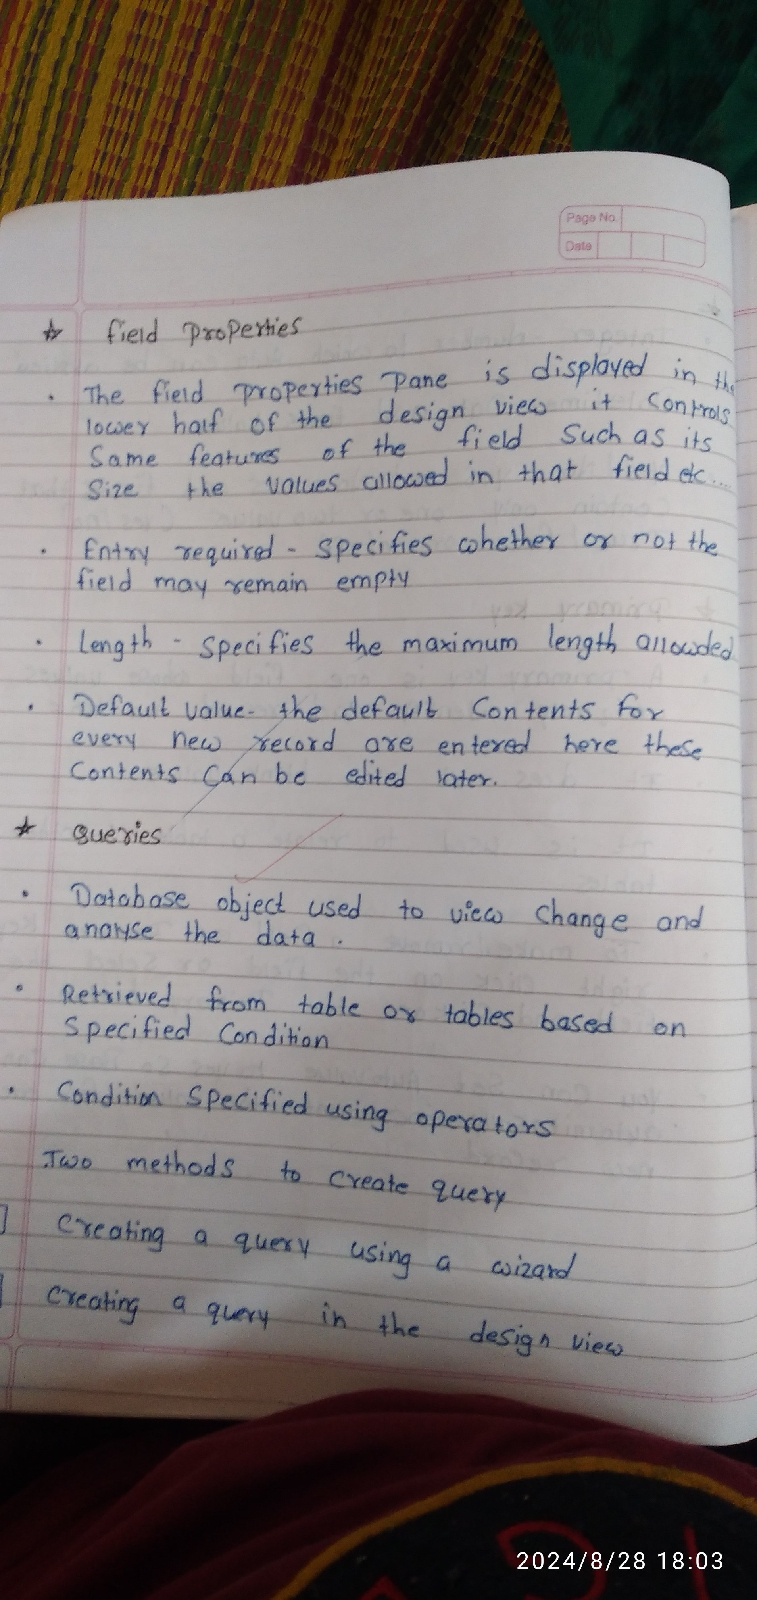 Page No.
Date
☆ field properties
• The field properties pane is displayed in the
lower half of the design view it controls
Same features of the field Such as its
Size the values allowed in that field etc...
• Entry required - specifies whether or not the
field may remain empty
• Length - specifies the maximum length allowded
• Default value - the default Contents for
every new record are entered here these
Contents Can be edited later.
☆ queries
• Database object used to view Change and
analyse the data.
• Retrieved from table or tables based on
Specified Condition
• Condition Specified using operators
Two methods to create query
] Creating a query using a wizard
] Creating a query in the design view
2024/8/28 18:03